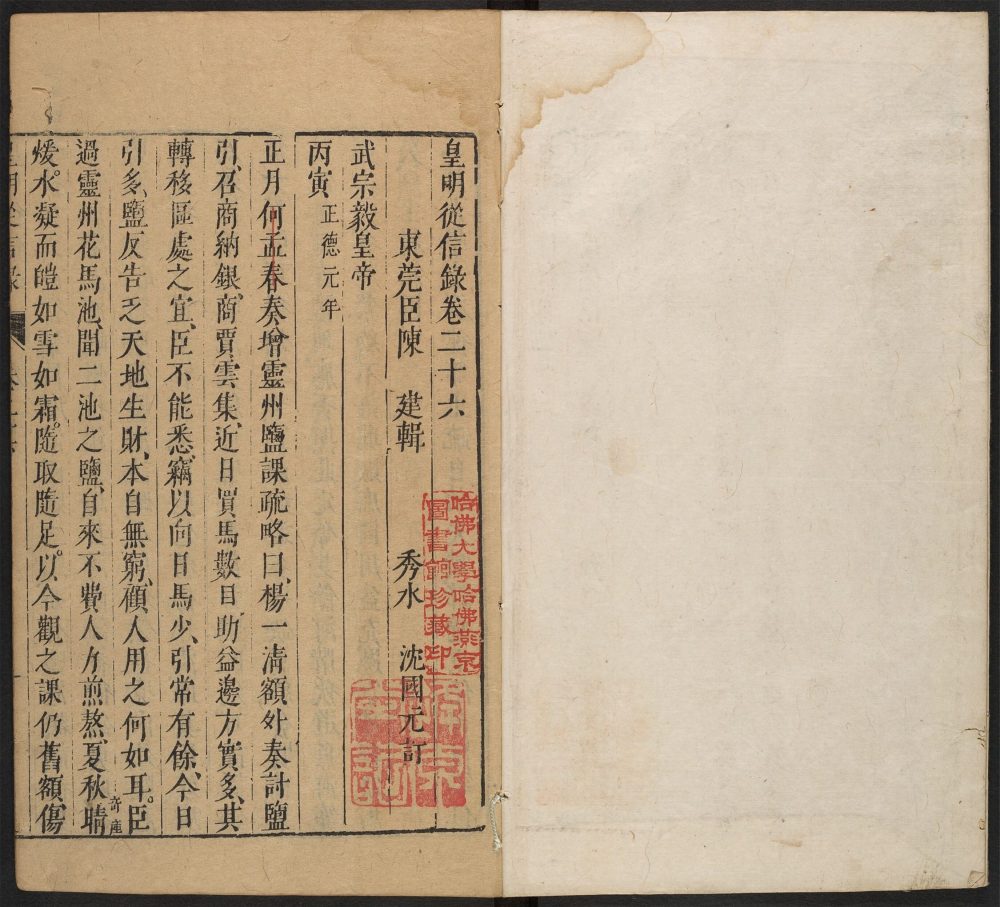 皇明從信錄卷二十六
東莞臣陳　建輯　秀水　沈國元訂
武宗毅皇帝
丙寅 正德元年
正月何孟春奏增靈州鹽課疏略曰楊一清額外奏討鹽
引、召商納銀、商賈雲集、近日買馬數目、助益邊方實多、其
轉移區處之宜、臣不能悉、竊以向日馬少、引常有餘、今日
引多、鹽反告乏天地生財、本自無窮、顧人用之何如耳。臣
過靈州花馬池、聞二池之鹽、自來不費人力煎熬、夏秋晴
奇產
煖、水凝而皚如雪如霜。隨取隨足。以今觀之課仍舊額、傷
哈佛大學哈佛燕京
圖書館珍藏印